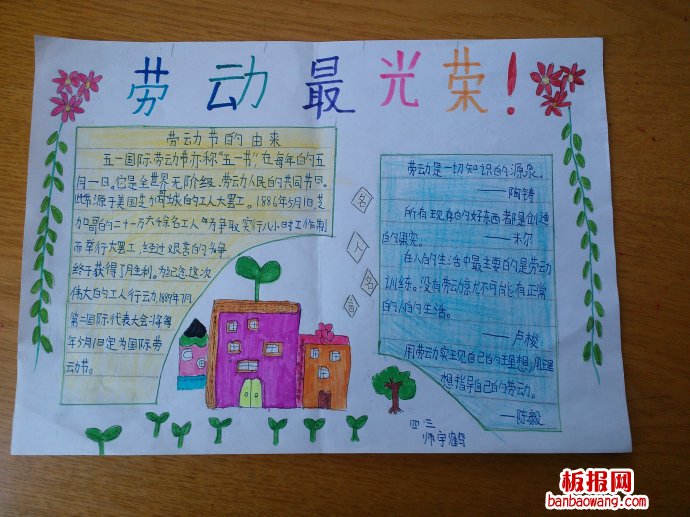 劳动最光荣!
劳动节的由来
五一国际劳动节亦称"五一节",在每年的五
月一日。它是全世界无阶级、劳动人民的共同节日。
此节源于美国芝加哥城的工人大罢工。1886年5月1日芝
加哥的二十一万六千余名工人为争取实行八小时工作制
而举行大罢工,经过艰苦的斗争
终于获得了胜利。为纪念这次
伟大的工人行动,1889年7月
第二国际代表大会,将每
年5月1日定为国际劳
动节。
名人名言
劳动是一切知识的源泉。
——陶铸
所有现存的好东西都是创造
的果实。——米尔
在人的生活中最主要的是劳动
训练。没有劳动就不可能有正常
的人的生活。
——卢梭
用劳动实现自己的理想,用理
想指导自己的劳动。
——陈毅
四、三
师宇鹤
板报网
banbaowang.com